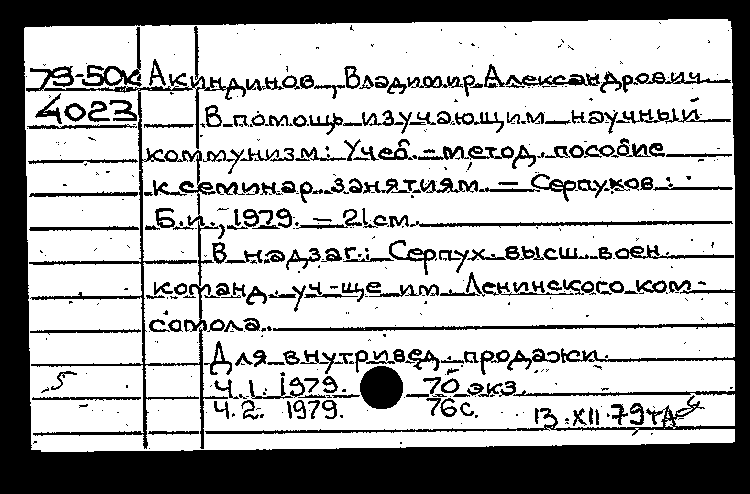 79-50к Акиндинов, Владимир Александрович
4023 В помощь изучающим научный
коммунизм: Учеб.-метод. пособие
к семинар. занятиям. — Серпухов:
Б.и., 1979. — 21 см.
В надзаг.: Серпух. высш. воен.
команд. уч-ще им. Ленинского ком-
сомола.
Для внутривед. продажи.
5 Ч.1. 1979. 70 экз.
Ч.2. 1979. 76с. 13.XII.79